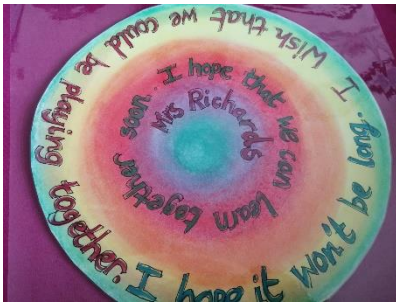 I wish that we could be playing together. I hope it won't be long.
I hope that we can learn together soon.
Mrs Richards